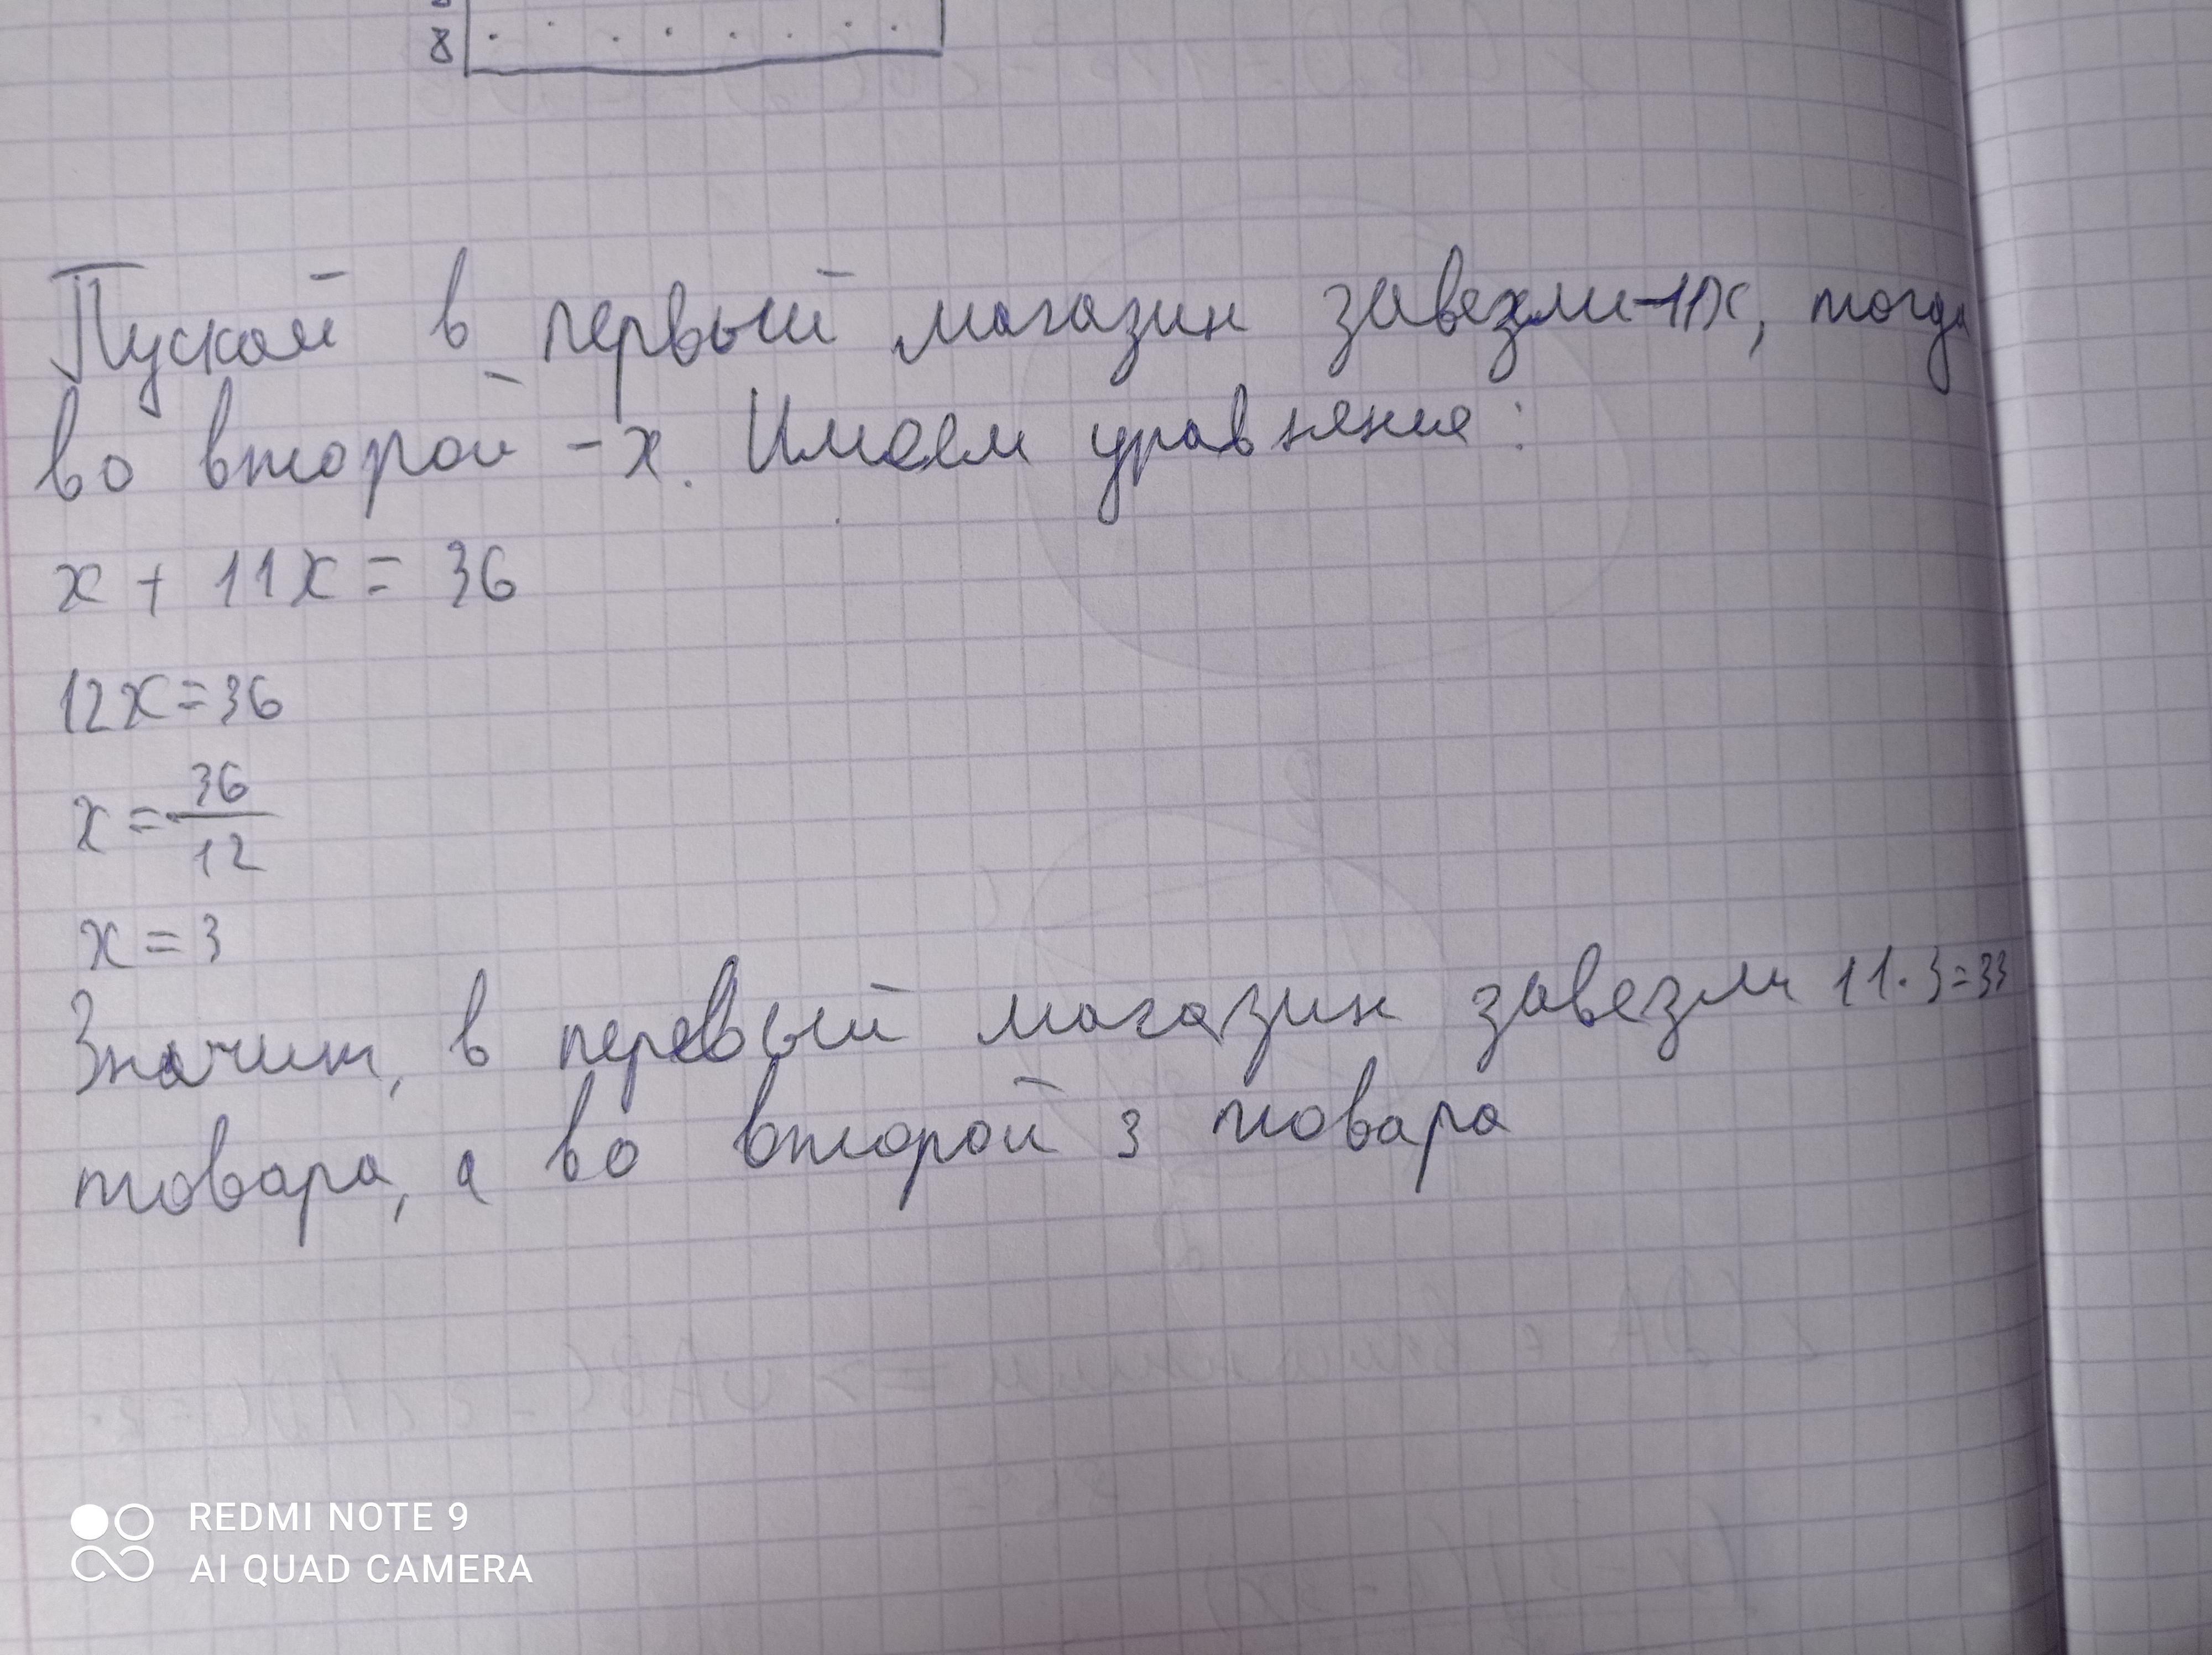 8
Пускай в первый магазин завезли-11x, тогда
во второй - x. Имеем уравнение:
x + 11x = 36
12x = 36
x = 36/12
x = 3
Значит, в первый магазин завезли 11·3=33
товара, а во второй 3 товара
REDMI NOTE 9
AI QUAD CAMERA